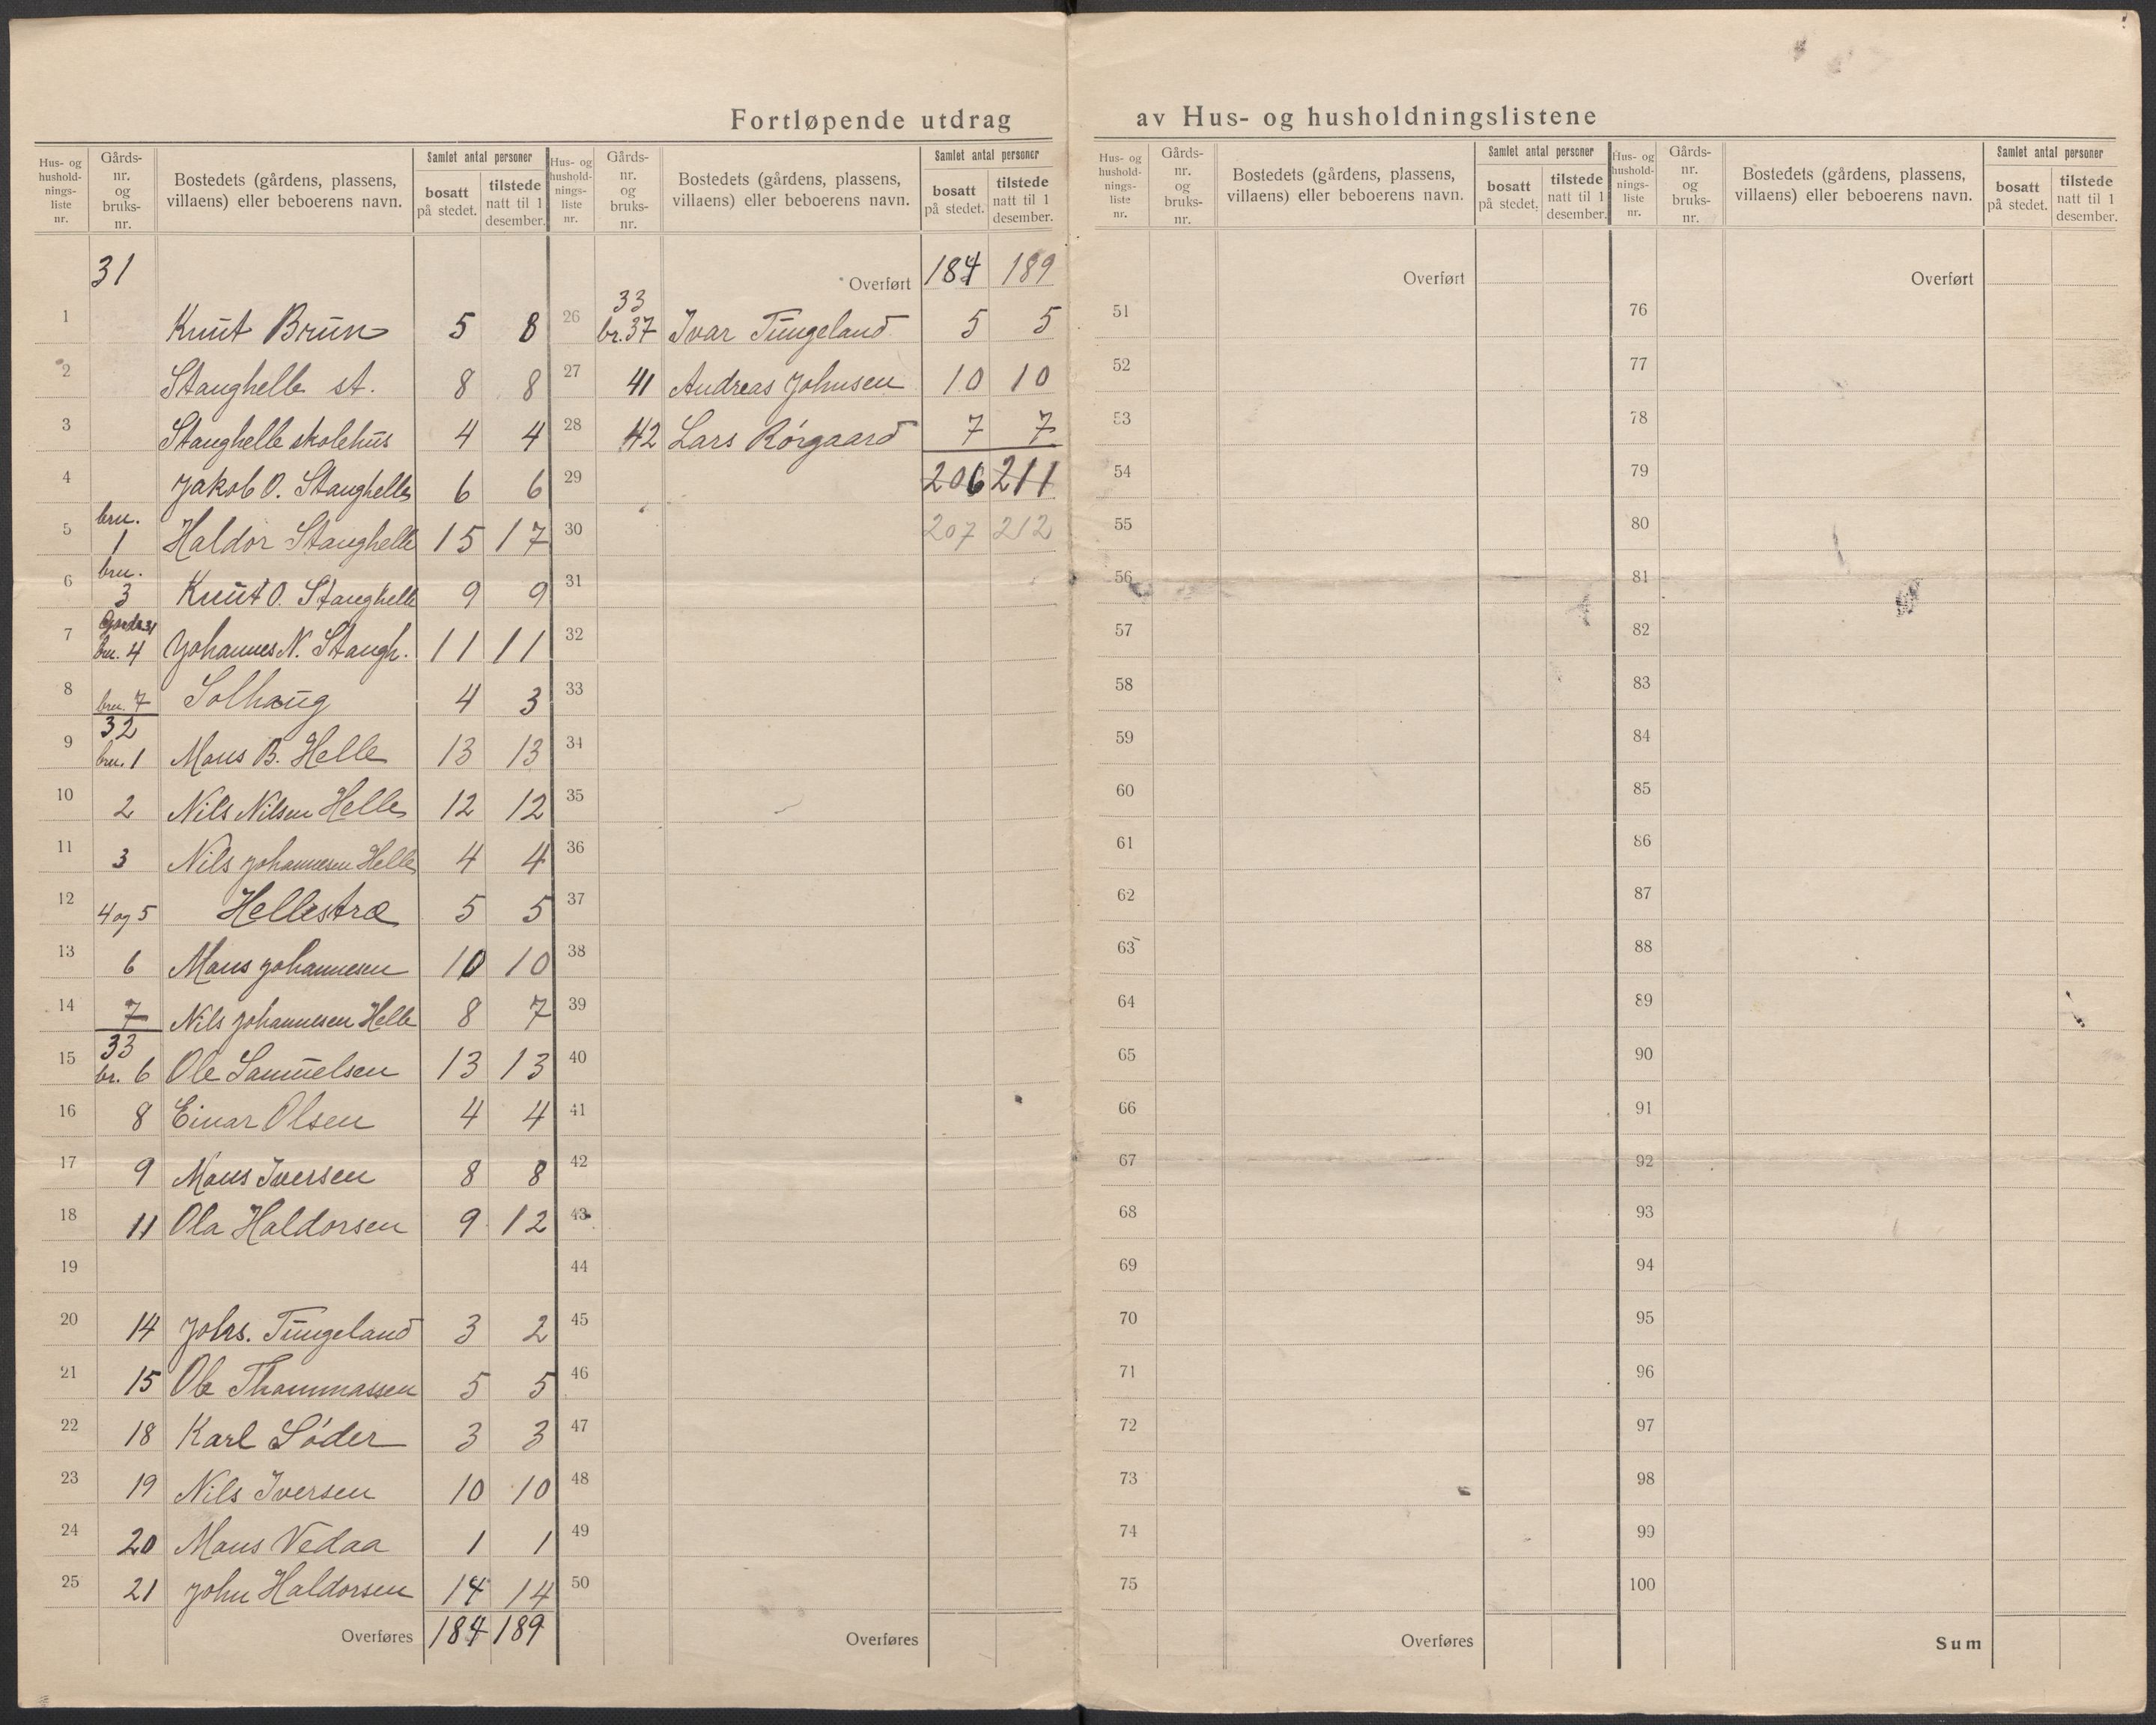 Fortløpende utdrag av Hus- og husholdningslistene
Hus- og husholdningsliste nr. Gårds-nr. og bruks-nr. Bostedets (gårdens, plassens, villaens) eller beboerens navn. Samlet antal personer bosatt på stedet. tilstede natt til 1 desember.
31
1 Knut Brun 5 8
2 Stanghelle st. 8 8
3 Stanghelle skolehus 4 4
4 Jakob O. Stanghelle 6 6
5 bru. 1 Haldor Stanghelle 15 17
6 bru. 3 Knut O. Stanghelle 9 9
7 Gards 31 bru. 4 Johannes N. Stangh. 11 11
8 bru. 7 Solhaug 4 3
32
9 bru. 1 Mons B. Helle 13 13
10 2 Nils Nilsen Helle 12 12
11 3 Nils Johannesen Helle 4 4
12 4 og 5 Hellestræ 5 5
13 6 Mons Johannesen 10 10
14 7 Nils Johannesen Helle 8 7
33
15 br. 6 Ole Samuelsen 13 13
16 8 Einar Olsen 4 4
17 9 Mons Iversen 8 8
18 11 Ola Haldorsen 9 12
19
20 14 Johs. Tungeland 3 2
21 15 Ole Thommassen 5 5
22 18 Karl Söder 3 3
23 19 Nils Iversen 10 10
24 20 Mons Vedaa 1 1
25 21 John Haldorsen 14 14
Overføres 184 189
Hus- og husholdningsliste nr. Gårds-nr. og bruks-nr. Bostedets (gårdens, plassens, villaens) eller beboerens navn. Samlet antal personer bosatt på stedet. tilstede natt til 1 desember.
Overført 184 189
33
26 br. 37 Ivar Tungeland 5 5
27 41 Andreas Johnsen 10 10
28 42 Lars Rörgaard 7 7
29 206 211
30 207 212
31
32
33
34
35
36
37
38
39
40
41
42
43
44
45
46
47
48
49
50
Overføres
Hus- og husholdningsliste nr. Gårds-nr. og bruks-nr. Bostedets (gårdens, plassens, villaens) eller beboerens navn. Samlet antal personer bosatt på stedet. tilstede natt til 1 desember.
Overført
51
52
53
54
55
56
57
58
59
60
61
62
63
64
65
66
67
68
69
70
71
72
73
74
75
Overføres
Hus- og husholdningsliste nr. Gårds-nr. og bruks-nr. Bostedets (gårdens, plassens, villaens) eller beboerens navn. Samlet antal personer bosatt på stedet. tilstede natt til 1 desember.
Overført
76
77
78
79
80
81
82
83
84
85
86
87
88
89
90
91
92
93
94
95
96
97
98
99
100
Sum